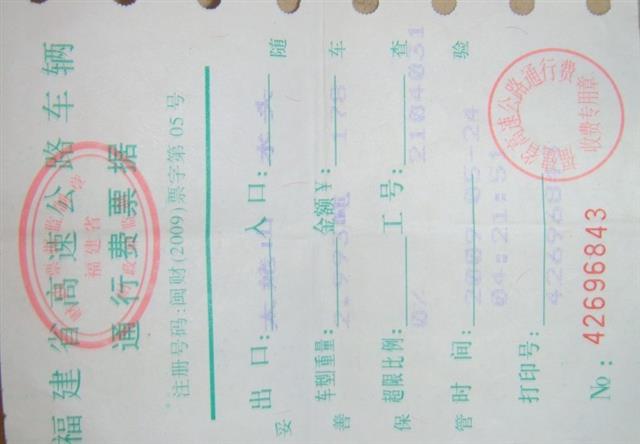 福建省高速公路车辆
通行费票据
注册号码：闽财(2009)票字第05号
出口： 入口：水头
车型\重量： 金额￥：178
超限比例：0% 工号：2104031
时间：2009-05-24
04:21:51
打印号：42696843
No: 42696843
随车查验
妥善保管
福建省高速公路通行费
收费专用章
福建省